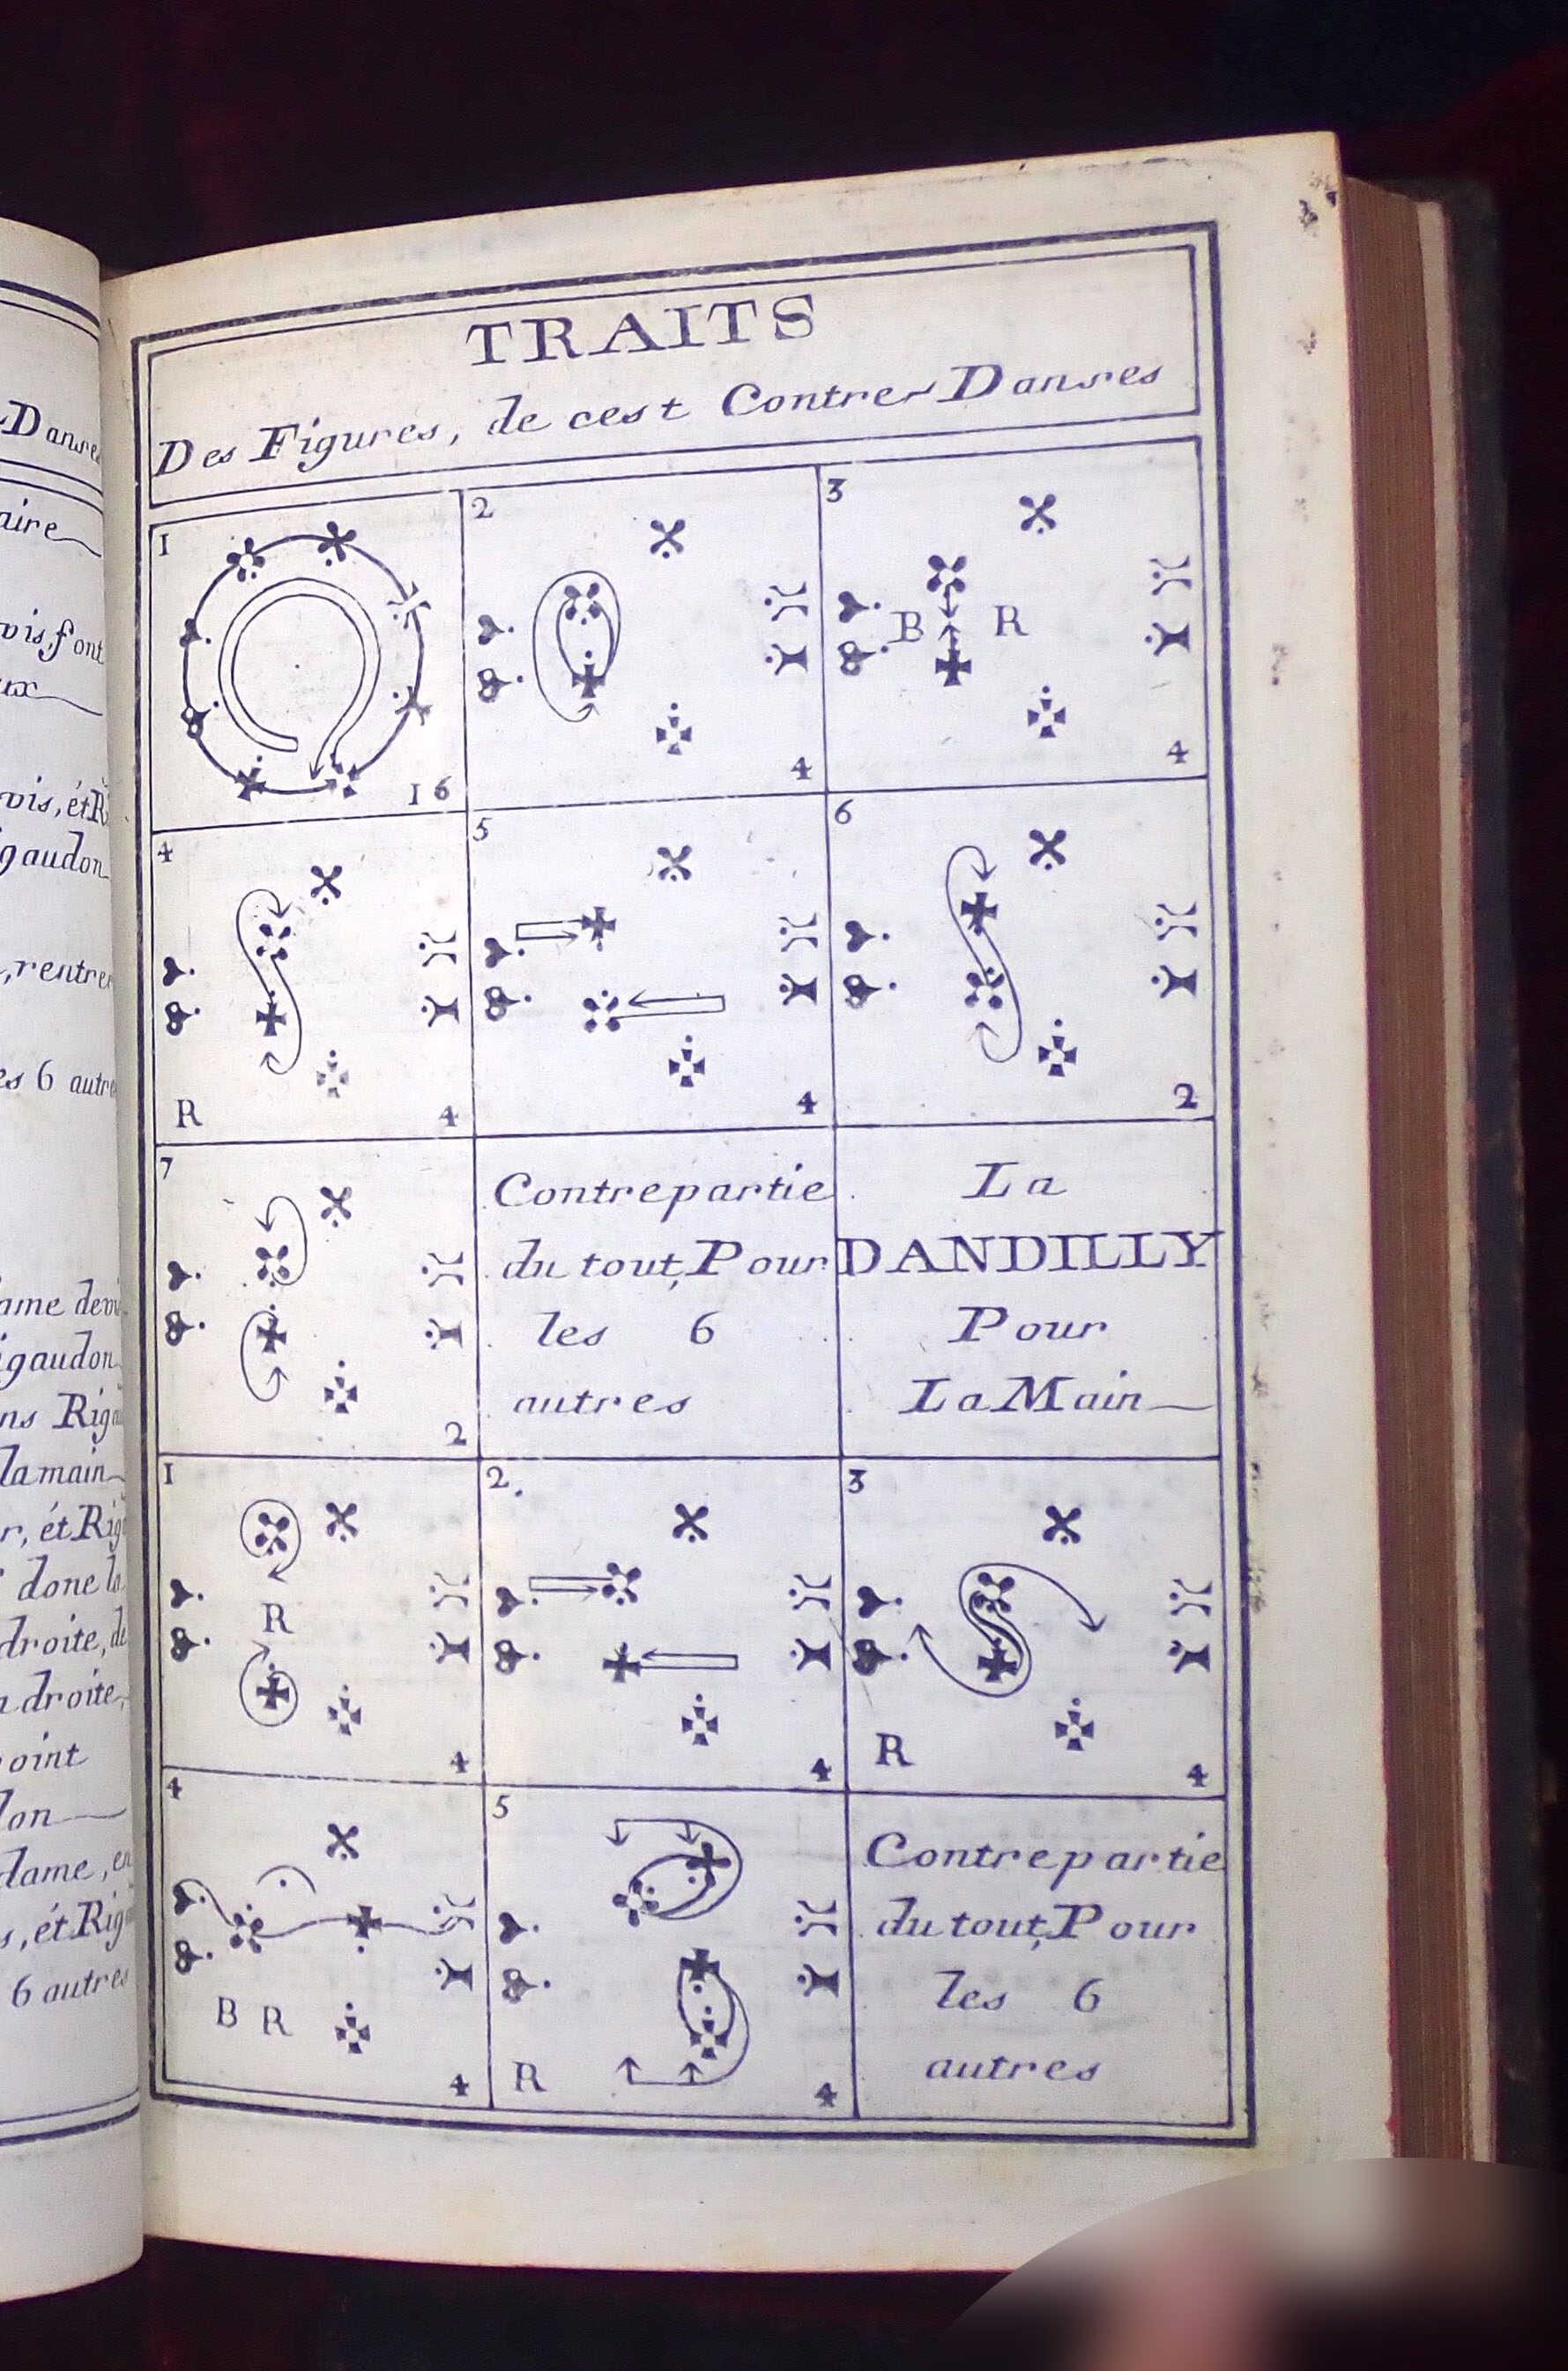 Danse
aire
vois, font
eux
vois, ét R
gaudon
, rentre
es 6 autre
ame devi
igaudon
ns Rig
la main
r, ét Rig
donc la
droite, de
droite,
point
don
dame, en
s, ét Rig
6 autres
TRAITS
Des Figures, de cest Contre Danses
1
16
2
4
3
B R
4
4
R
4
5
4
6
2
7
2
Contrepartie
du tout, Pour
les 6
autres
La
DANDILLY
Pour
La Main
1
R
4
2.
4
3
R
4
4
B R
4
5
R
4
Contrepartie
du tout, Pour
les 6
autres